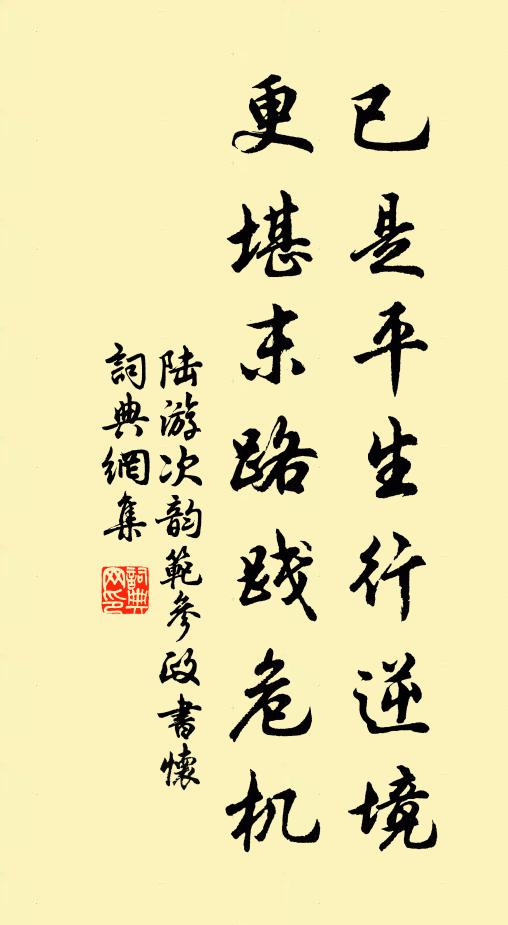 已是平生行逆境
更堪末路践危机
陆游次韵範參政書懷
詞典網集
詞典网印